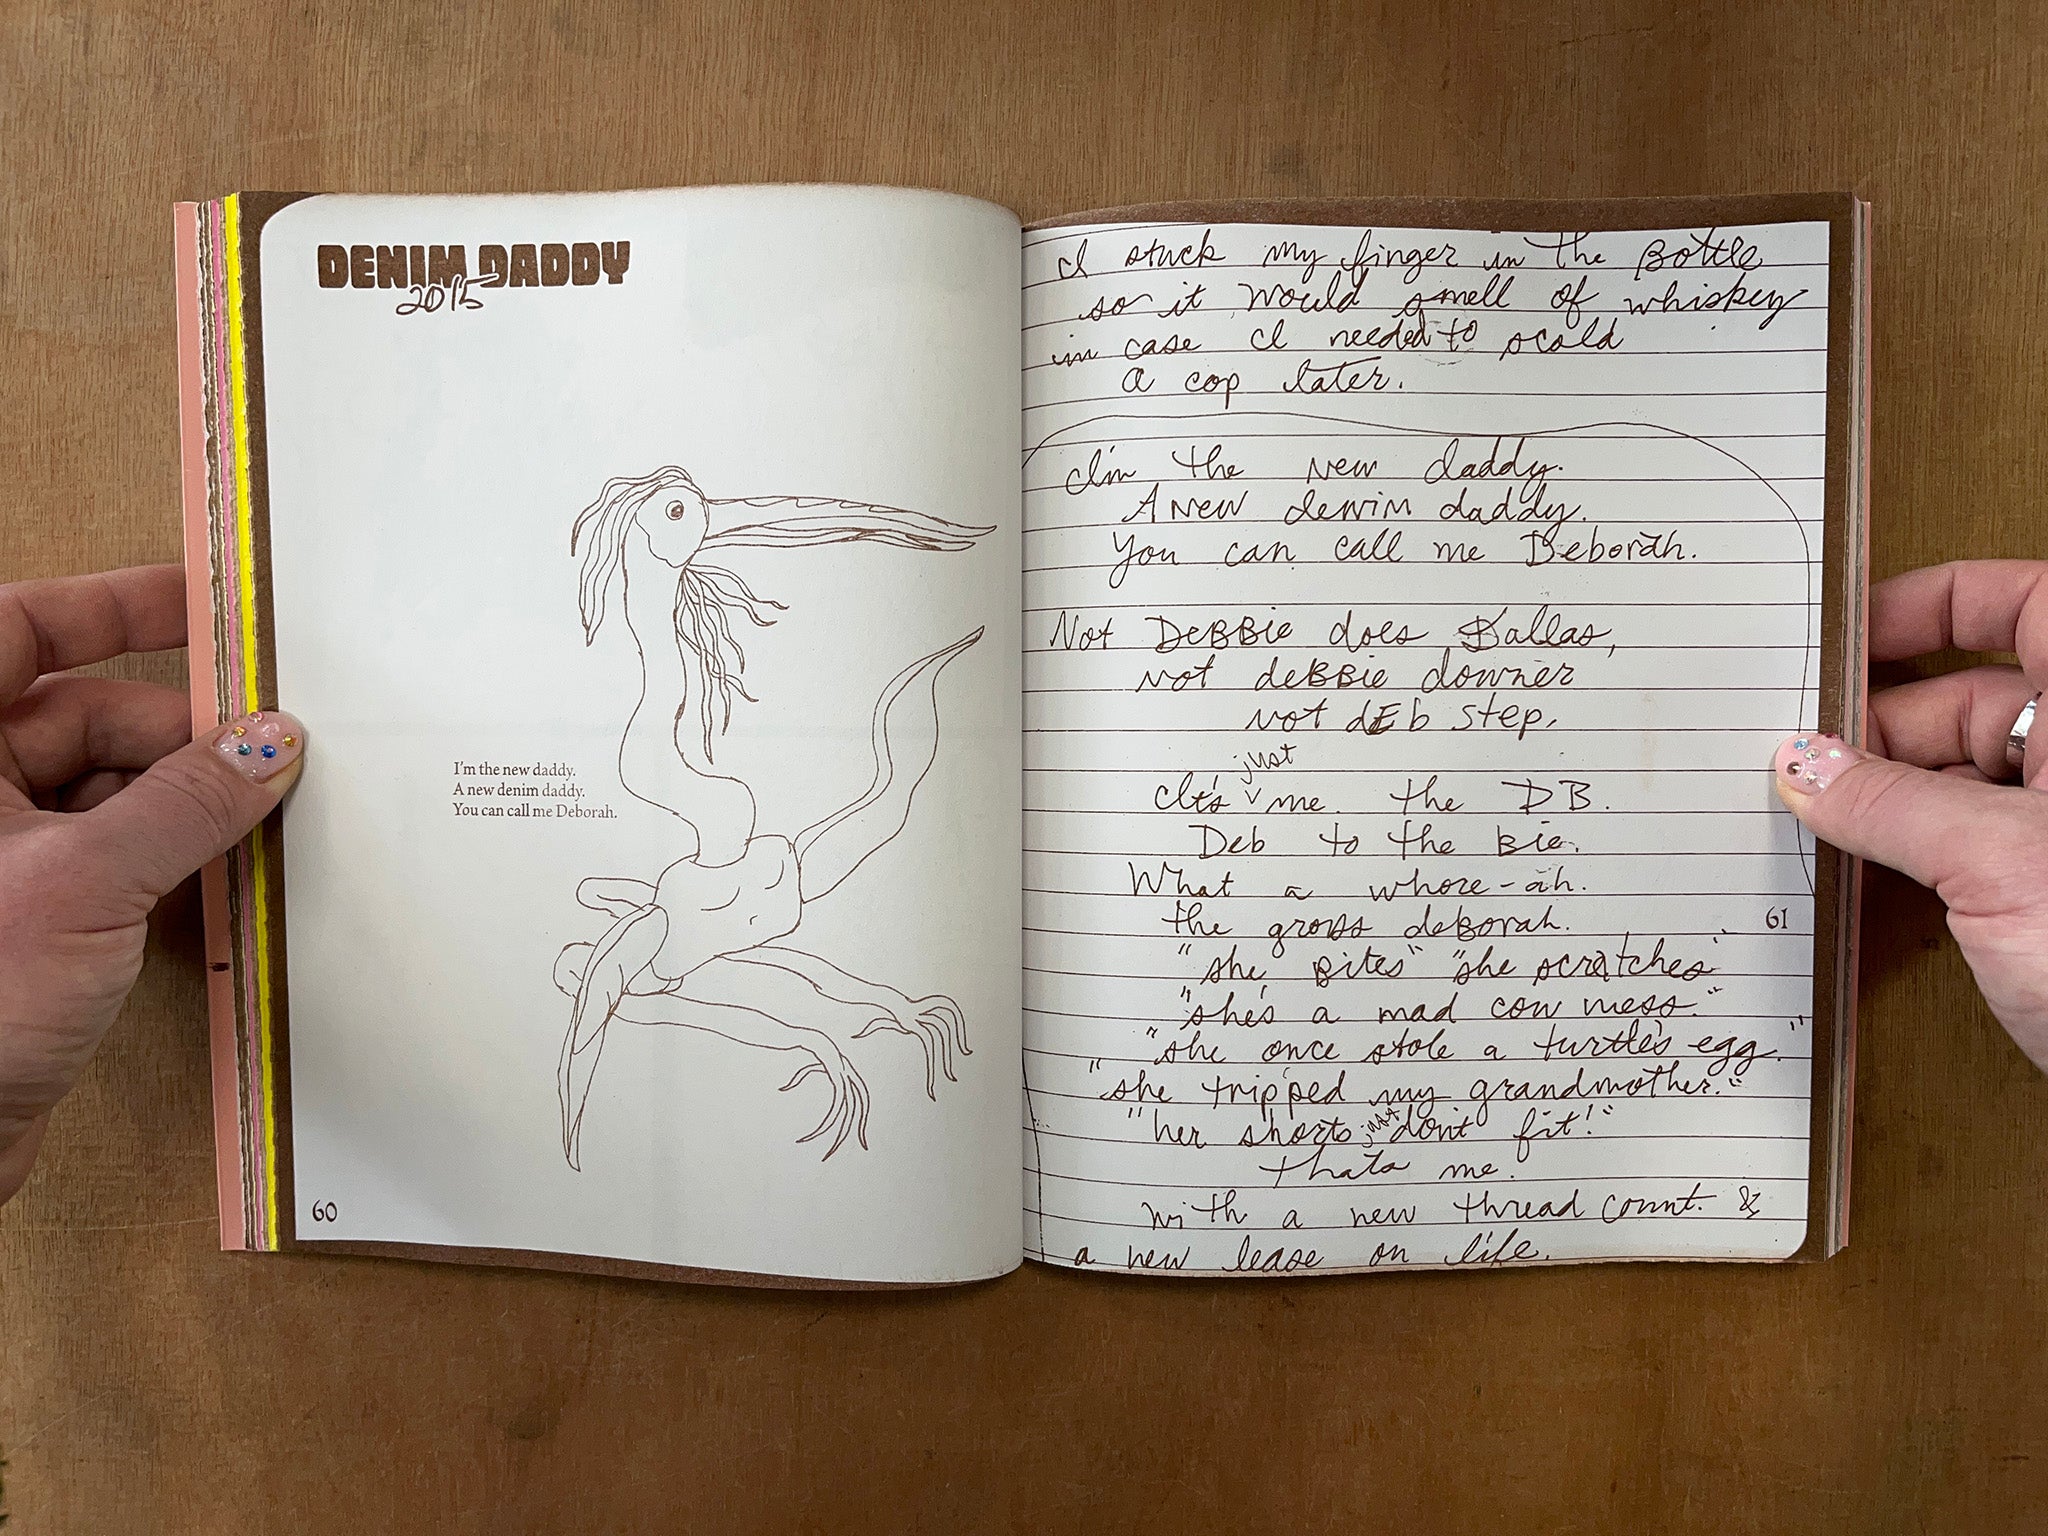 DENIM DADDY
2015
I'm the new daddy.
A new denim daddy.
You can call me Deborah.
60
I stuck my finger in the Bottle
so it would smell of whiskey
in case I needed to scold
a cop later.
I'm the new daddy.
A new denim daddy.
You can call me Deborah.
Not DeBBie does Dallas,
not deBBie downer
not dEb step,
It's just me. the DB.
Deb to the Bie.
What a whore-ah.
the gross deborah.
"she, Bites" "she scratches"
"she's a mad cow mess."
"she once stole a turtle's egg."
"she tripped my grandmother."
"her shorts just don't fit!"
thats me.
With a new thread count. &
a new lease on life.
61